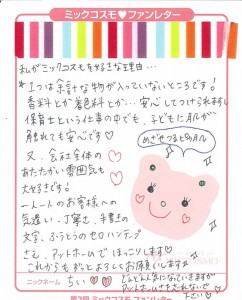 ミックコスモ♥ファンレター
私がミックコスモを好きな理由…
*1つは余計な物が入っていないところです!
香料とか着色料とか…安心してつけられますし
保育士という仕事の中でも、子どもに肌が
触れても安心です♡
めざせつるピカ肌
又、会社全体の
あたたかい雰囲気も
大好きです!
一人一人のお客様への
気遣い・丁寧さ、手書きの
文字、ふうとうのセロハンテープ
さえ、アットホームでほっこりします♡
これからもずっとよろしくお願いします
どんどん大きになっていきますが
アットホームさを忘れないで下さい♡
ニックネーム ちい♡♡
第3回 ミックコスモ ファンレター